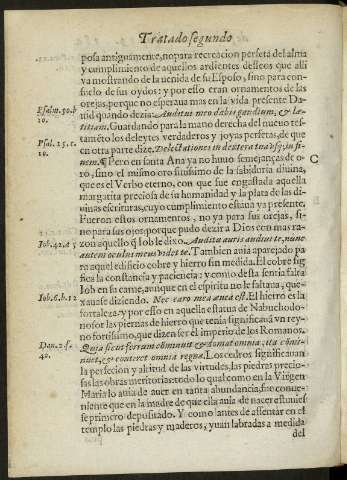 Tratado segundo
posa antiguamente, no para recreacion perfeta del alma
y cumplimiento de aquellos ardientes desseos que alli
va mostrando de la uenida de su Esposo, sino para con-
suelo de sus oydos: y por esso eran ornamentos de las
orejas, porque no esperaua mas en la vida presente Da-
Psalm. 50. b
uid quando dezia: Auditui meo dabis gaudium, & læ-
10.
titiam. Guardando para la mano derecha del nueuo tes-
Psal. 15. c.
tamēto los deleytes verdaderos y joyas perfetas, de que
10.
en otra parte dize. Delectationes in dextera tua vsq; in fi-
nem. ¶ Pero en santa Ana ya no huuo semejanças de o-
C
ro, sino el mismo oro finissimo de la sabiduria diuina,
que es el Verbo eterno, con que fue engastada aquella
margarita preciosa de su humanidad y la plata de las di-
uinas escrituras, cuyo cumplimiento estaua ya presente.
Fueron estos ornamentos, no ya para sus orejas, si-
no para sus ojos: porque pudo dezir a Dios con mas ra-
Iob. 42. a 5
zon aquello q̃ Iob le dixo. Auditu auris audiui te, nunc
autem oculus meus videt te. Tambien auia aparejado pa
ra aquel edificio cobre y hierro sin medida. El cobre sig
fica la constancia y paciencia: y como desta sentia falta
Iob. 6. b. 12
Iob en su carne, aunque en el espiritu no le faltaua, que-
xauase diziendo. Nec caro mea ænea est. El hierro es la
fortaleza: y por esso en aquella estatua de Nabuchodo-
nosor las piernas de hierro que tenia significauā vn rey-
no fortissimo, que dizen ser el imperio de los Romanos.
Dan. 2. f.
Quia sicut ferrum cōminuit & domat omnia, ita cōmi-
40.
nuet, & conteret omnia regna. Los cedros significauan
la perfecion y altitud de las virtudes, las piedras precio-
sas las obras meritorias: todo lo qual como en la Virgen
Maria lo auia de auer en tanta abundancia, fue conue-
niente que en la madre de que ella auia de nacer estuuies
se primero depositado. Y como antes de assentar en el
templo las piedras y maderos, yuan labradas a medida
del